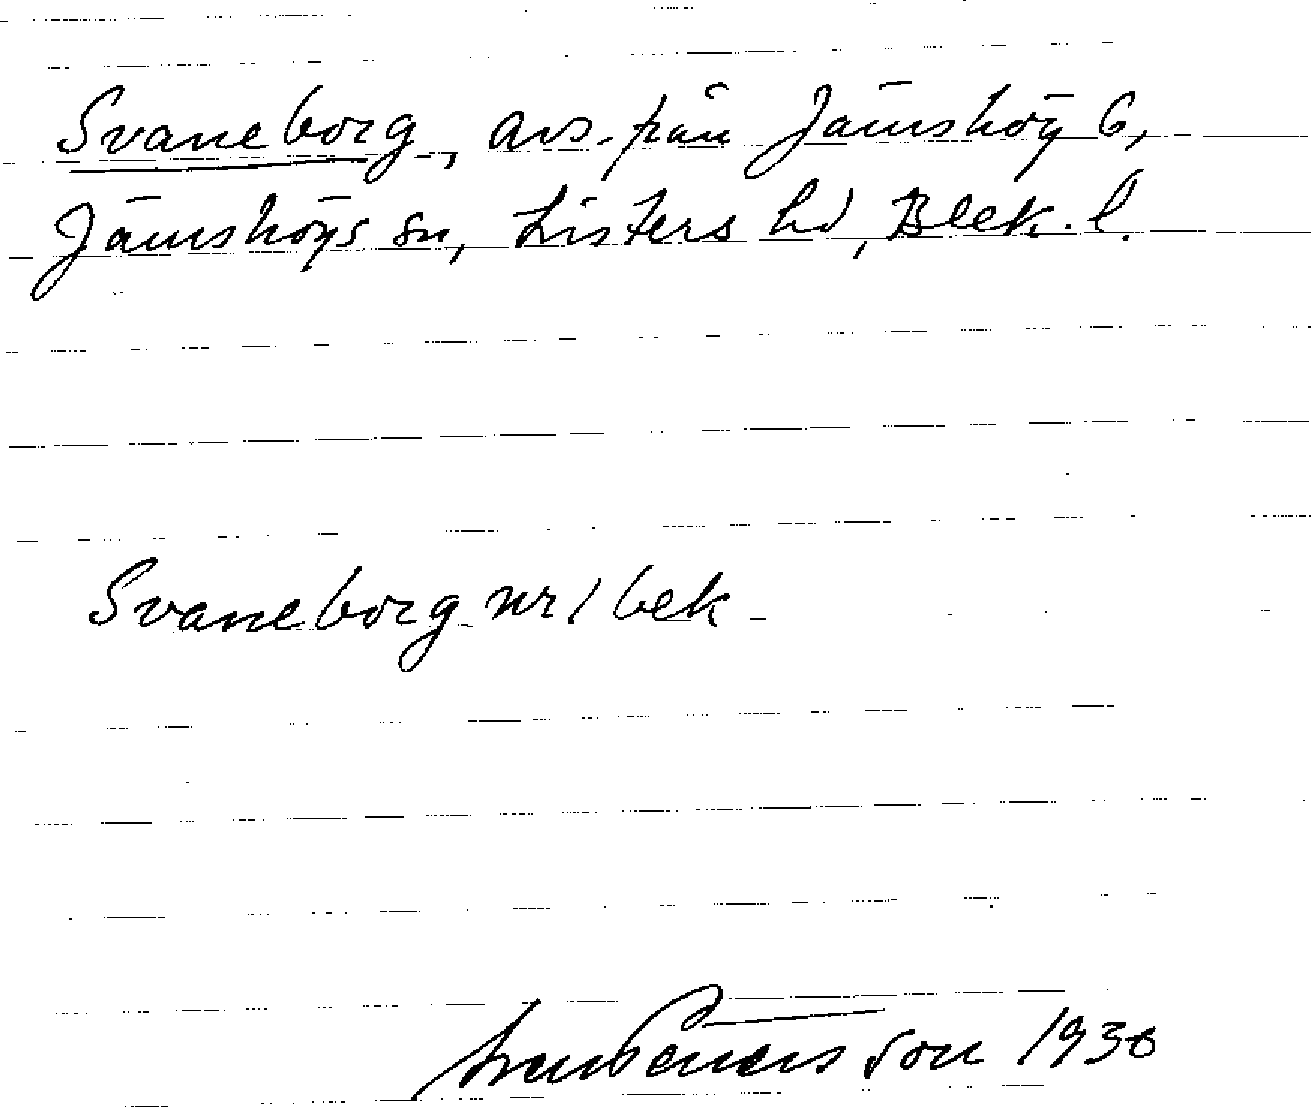 Svaneborg, avs. från Jämshög 6,
Jämshögs sn, Listers hd, Blek. l.
Svaneborg nr 1 bek
son 1930